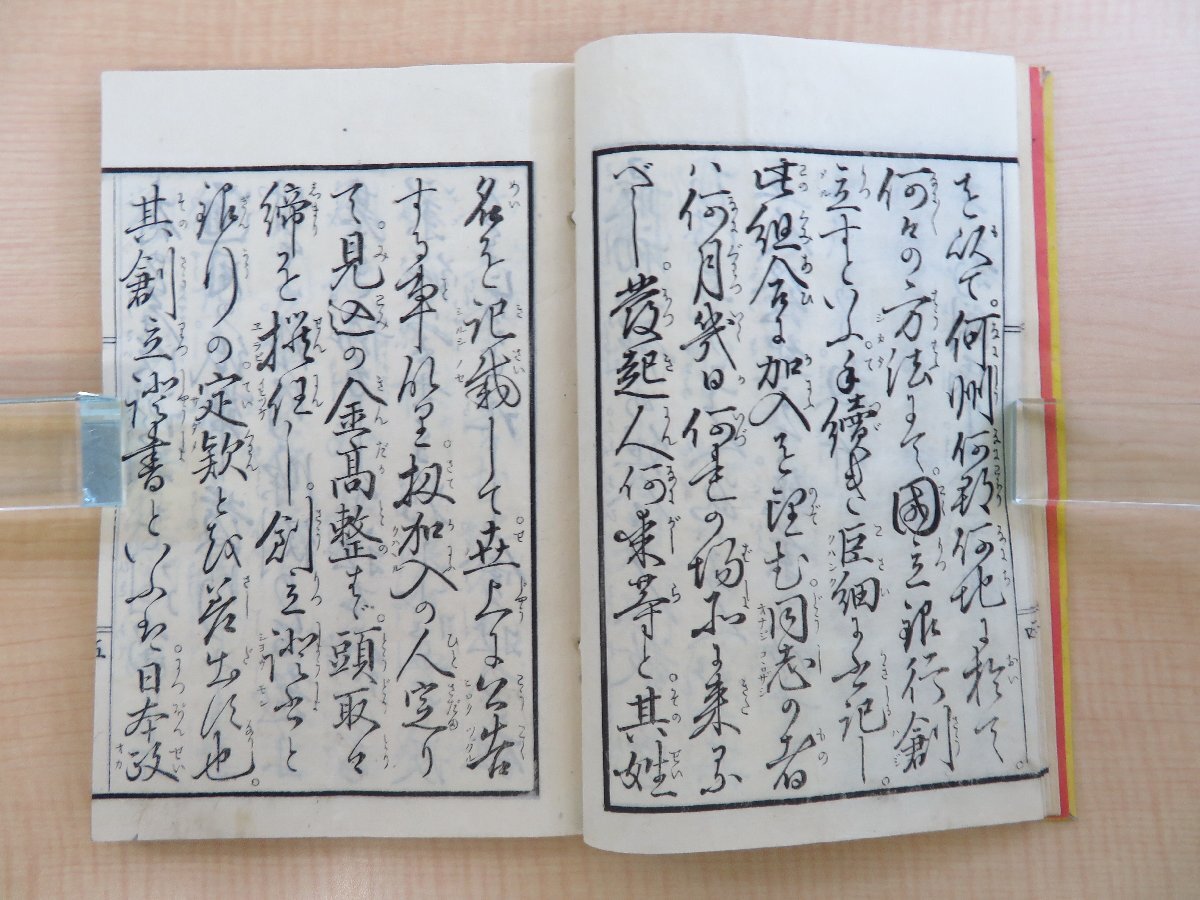 を以て。何州何郡何地に於て。
何々の方法にて。國立銀行創
立すといふ手續き巨細に書記し
此組合に加入を望む同志の者
ハ何月幾日何れの場所に来る
べし發起人何某等と其姓
名を記載して世上に公告
する事所里扨加入の人定り
て見込の金高整へば頭取取
締を撰任し創立證書と
銀行の定款とを差出す也。
其創立證書といふは日本政
五